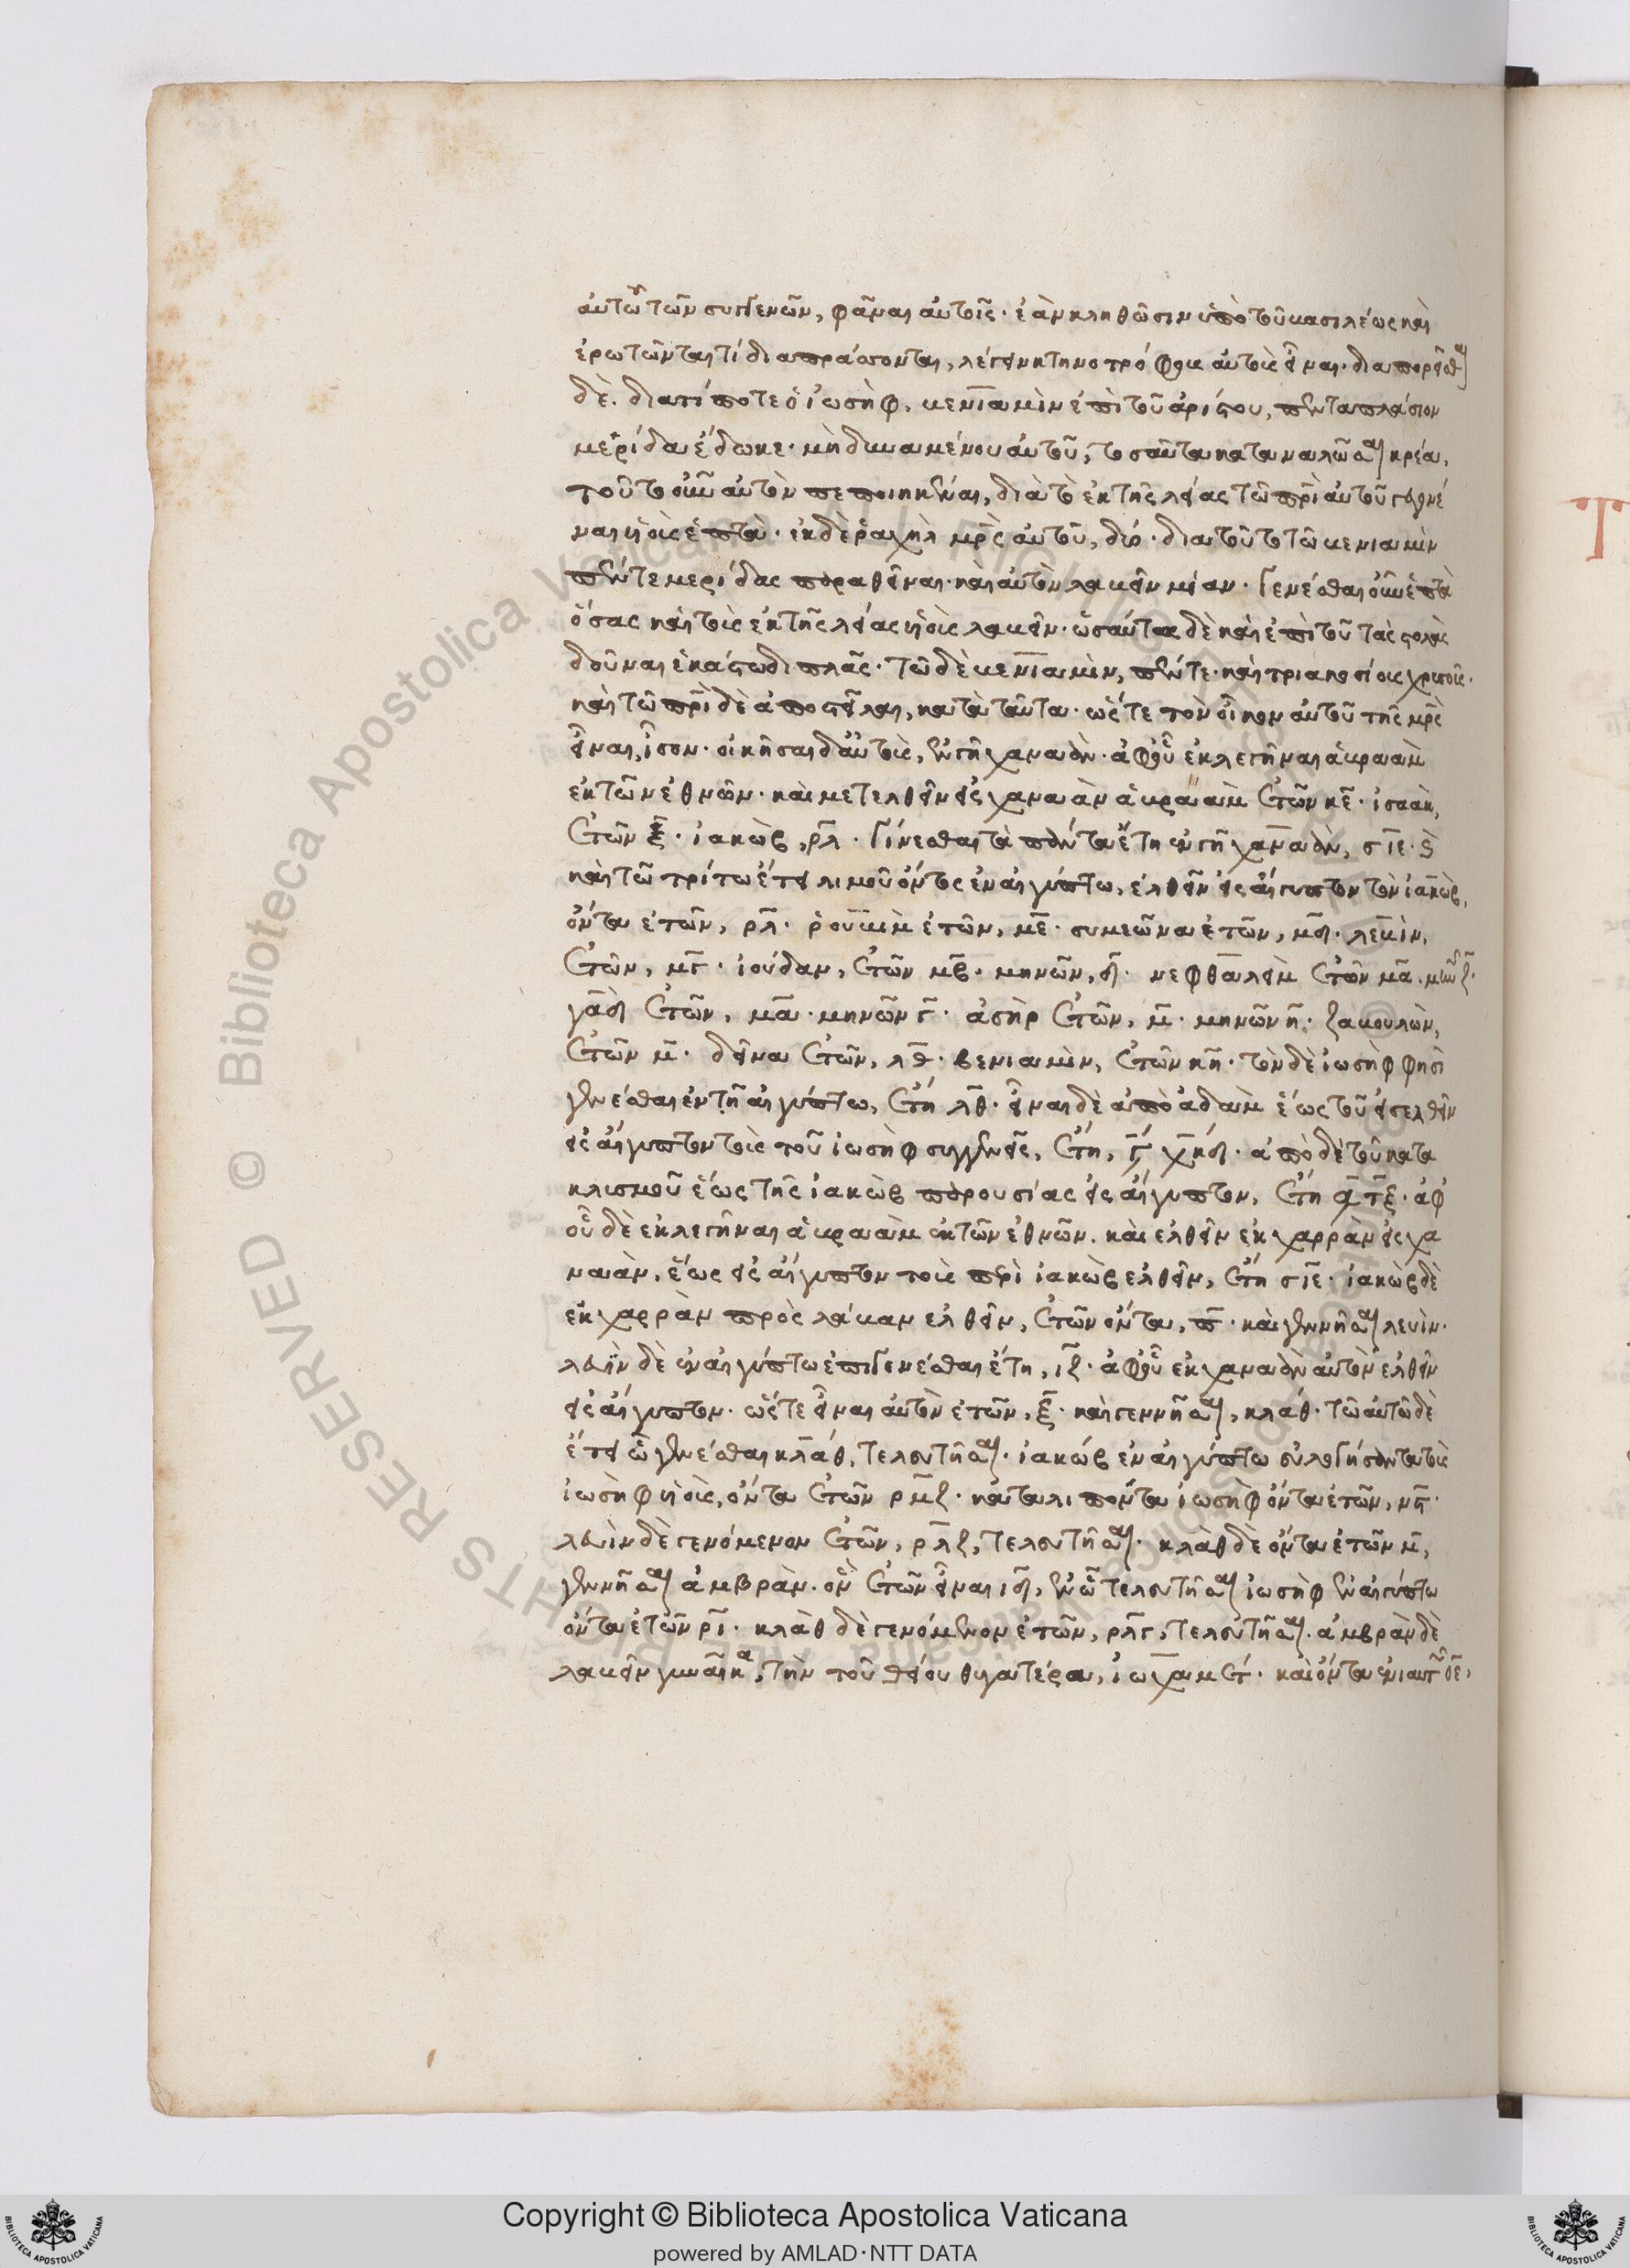 αὐτῶ τῶν συγγενῶν, φάναι αὐτοῖς· ἐὰν κληθῶσιν ὑπὸ τοῦ βασιλέως καὶ
ἐρωτῶνται τί διαπράσσονται, λέγειν κτηνοτρόφους αὐτοὺς εἶναι· διαπορεῖσθαι
δὲ. διατί ποτε ὁ ἰωσὴφ, βενιαμὶν ἐπὶ τοῦ ἀρίστου, πενταπλασίον
μερίδα ἔδωκε· μὴ δυναμένου αὐτοῦ, τοσαῦτα καταναλῶσαι κρέα,
τοῦτο οὖν αὐτὸν πεποιηκέναι, διὰ τὸ ἐκ τῆς λείας τῶ πρὶ αὐτοῦ γεγονέ
ναι υἱοὺς ἑπτὰ· ἐκ δὲ ῥαχὴλ μρὸς αὐτοῦ, δύο· διὰ τοῦτο τῶ βενιαμὶν
πέντε μερίδας παραθεῖναι· καὶ αὐτὸν λαβεῖν μίαν· γενέσθαι οὖν ἑπτὰ
ὅσας καὶ τοὺς ἐκ τῆς λείας υἱοὺς λαβεῖν· ὡσαύτως δὲ καὶ ἐπὶ τοῦ τὰς στολὰς
δοῦναι ἑκάστω διπλᾶς· τῶ δὲ βενιαμὶν, πέντε· καὶ τριακοσίους χρυσοῦς·
καὶ τῶ πρὶ δὲ ἀποστεῖλαι, κατὰ ταῦτα· ὥστε τὸν οἶκον αὐτοῦ τῆς μρὸς
εἶναι, ἴσον· οἰκῆσαι δ' αὐτοὺς, ἐν γῆ χαναὰν· ἀφ' οὗ ἐκλεγῆναι ἁβραὰμ
ἐκ τῶν ἐθνῶν· καὶ μετελθεῖν εἰς χαναὰν ἁβραὰμ ἐτῶν κε· ἰσαὰκ,
ἐτῶν ξ· ἰακὼβ, ρλ· γίνεσθαι τὰ πάντα ἔτη ἐν γῆ χαναὰν, σιε·
καὶ τῶ τρίτω ἔτει λιμοῦ ὄντος ἐν αἰγύπτω, ἐλθεῖν εἰς αἴγυπτον τὸν ἰακὼβ,
ὄντα ἐτῶν, ρλ· ῥουβὶμ ἐτῶν, με· συμεῶνα ἐτῶν, μδ· λεβὶν,
ἐτῶν, μγ· ἰούδαν, ἐτῶν μβ· μηνῶν, δ· νεφθαλεὶμ ἐτῶν μα. μηνῶν ζ·
γὰδ ἐτῶν, μα· μηνῶν γ· ἀσὴρ ἐτῶν, μ· μηνῶν η· ζαβουλὼν,
ἐτῶν μ· δεῖνα ἐτῶν, λθ· βενιαμὶν, ἐτῶν κη· τὸν δὲ ἰωσὴφ φησὶ
γενέσθαι ἐν τῆ αἰγύπτω, ἔτη λθ· εἶναι δὲ ἀπὸ ἀδὰμ ἕως τοῦ εἰσελθεῖν
εἰς αἴγυπτον τοὺς τοῦ ἰωσὴφ συγγενεῖς, ἔτη, ͵γ χκδ· ἀπὸ δὲ τοῦ κατα
κλυσμοῦ ἕως τῆς ἰακὼβ παρουσίας εἰς αἴγυπτον, ἔτη ͵α τξ· ἀφ'
οὗ δὲ ἐκλεγῆναι ἁβραὰμ ἐκ τῶν ἐθνῶν. καὶ ἐλθεῖν ἐκ χαρρὰν εἰς χα
ναὰν, ἕως εἰς αἴγυπτον τοὺς πρὶ ἰακὼβ ἐλθεῖν, ἔτη σιε· ἰακὼβ δὲ
ἐκ χαρρὰν πρὸς λάβαν ἐλθεῖν, ἐτῶν ὄντα, π· καὶ γεννῆσαι λευὶν·
λευὶν δὲ ἐν αἰγύπτω ἐπιγενέσθαι ἔτη, ιζ· ἀφ' οὗ ἐκ χαναὰν αὐτὸν ἐλθεῖν
εἰς αἴγυπτον· ὥστε εἶναι αὐτὸν ἐτῶν, ξ· καὶ γεννῆσαι, κλάθ· τῶ αὐτῶ δὲ
ἔτει ᾧ γενέσθαι κλάθ, τελευτῆσαι· ἰακώβ ἐν αἰγύπτω εὐλογήσαντα τοὺς
ἰωσὴφ υἱοὺς, ὄντα ἐτῶν ρμζ· καταλιπόντα ἰωσὴφ ὄντα ἐτῶν, νϛ·
λευὶν δὲ γενόμενον ἐτῶν, ρλζ, τελευτῆσαι· κλὰθ δὲ ὄντα ἐτῶν μ,
γεννῆσαι ἀμβρὰμ. ὃν ἐτῶν εἶναι ιδ, ἐν ᾧ τελευτῆσαι ἰωσὴφ ἐν αἰγύπτω
ὄντα ἐτῶν ρι· κλὰθ δὲ γενόμενον ἐτῶν, ρλγ, τελευτῆσαι. ἀμβρὰν δὲ
λαβεῖν γυναῖκα, τὴν τοῦ θείου θυγατέρα, ἰωχαβετ· καὶ ὄντα ἐνιαυτῶν οε,